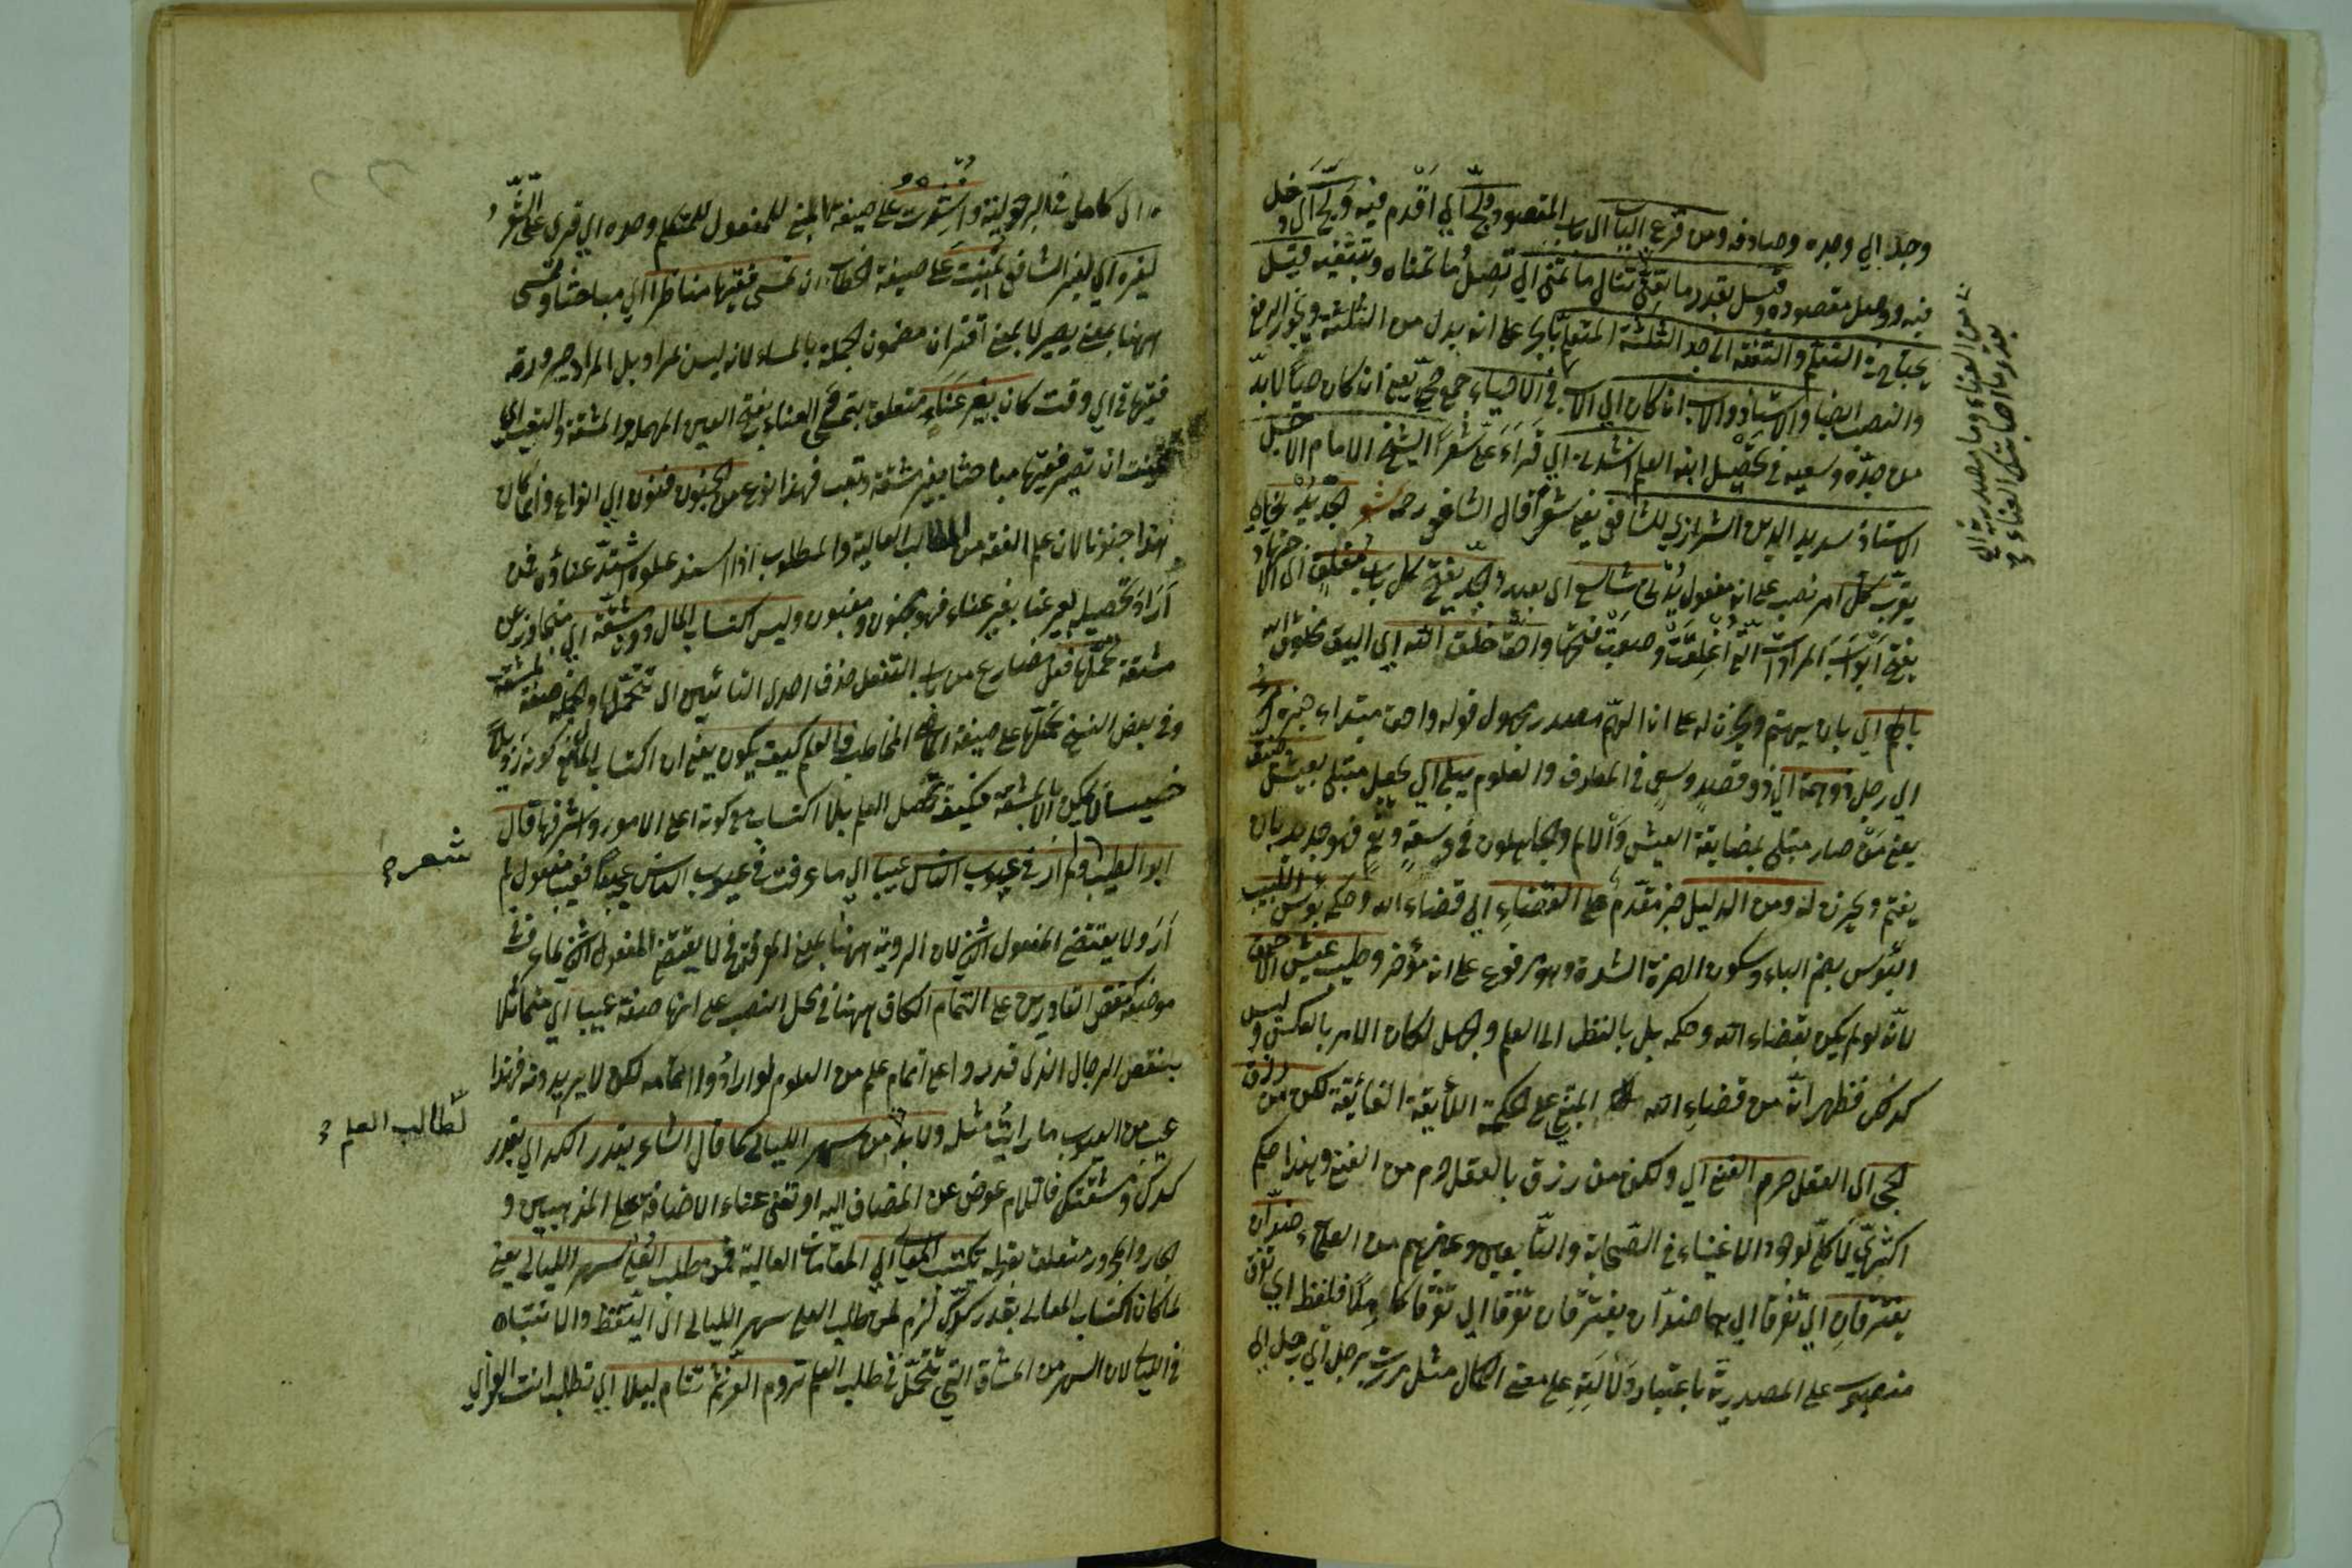 وجد اي وجده وصادفه ومن قرع الباب اي باب المقصود ولجّ اي اقدم فيه ولج اي دخل
فيه ووصل مقصوده وقيل بقدر ما تتعنى تنال ما تتمنى اي تصل ما تتمناه وتبتغيه قيل
يحتاج في التعلم والتفقه الى جد الثلثة المتعلم بالجر على انه بدل من الثلثة ويجوز الرفع
والنصب ايضا والاستاذ والاب ان كان اي الاب في الاحياء جمع حيّ يعني ان كان حيّا لا بدّ
من جدّه وسعيه في تحصيل ابنه العلم انشدني اي قراء علّ شعرا الشيخ الامام الاجل
الاستاذ سديد الدين الشيرازي للشافعي يعني شعرا قال الشافعي رحمه شعر الجد يدني
يقرب كل امر نصب على انه مفعول يدني شاسع اي بعيد والجد يفتح كل باب مغلق اي
يفتح ابواب المرادات التي اغلقت وصعبت فتحها واحق خلق الله اي اليق مخلوق الله
بالهم اي بان يهتم ويحزن له على ان الهم مصدر مجهول قوله واحق مبتداء خبره امرء
اي رجل ذو همة اي ذو قصد وسعي في المعارف والعلوم يبلى اي يجعل مبتلى بعيش ضيق
يعني من صار مبتلى بمضايقة العيش والالام والجاهلون في وسعة فهو جدير بان
يغتم ويحزن له ومن الدليل خبر مقدم على القضاء اي قضاء الله وحكمه بؤس اللبيب
البؤس بضم الباء وسكون الهمزة الشدة وهو مرفوع على انه مؤخر وطيب عيش الاحمق
لانه لو لم يكن بقضاء الله وحكمه بل بالنظر الى العلم والجهل لكان الامر بالعكس وليس
كذلك فظهر انه من قضاء الله المبني على الحكمة اللايقة الفائقة لكن من رزق
الحجى اي العقل حرم الغنى اي ولكن من رزق بالعقل حرم من الغنى وهذا حكم
اكثري لا كلي لوجود الاغنياء في الصحابة والتابعين وغيرهم من العلماء ضدان
يفترقان اي تفرقا اي هما ضدان يفترقان تفرقا اي تفرقا كاملا فلفظ اي
منصوب على المصدرية باعتبار دلالته على معنى الكمال مثل مررت برجل اي رجل اي
من العناء وما مصدرية اي
بقدر ما اصابتك العناء
اي كامل في الرجولية وانشدت على صيغة المبني للمفعول للمتكلم وحده اي قرى علّ الشعر
لغيره اي لغير الشافعي تمنيت على صيغة الخطاب ان تمسي فقيها مناظرا اي مباحثا وتمسي
ههنا بمعنى يصير لا بمعنى اقتران مضمون الجملة بالمساء لانه ليس بمراد بل المراد صيرورته
فقيها في اي وقت كان بغير عناء متعلق بتمسي العناء بفتح العين المهملة المشقة والتعب اي
تمنيت ان تصير فقيها مباحثا بغير مشقة وتعب فهذا نوع من الجنون فنون اي انواع وانما كان
هذا جنونا لان علم الفقه من المطالب العالية والمطلوب اذا اشتد علوه اشتد عناؤه فمن
اراد تحصيله بغير عناء فهو مجنون ومغبون وليس اكتساب المال دون مشقة اي متجاوزا عن
مشقة تحملها فعل مضارع من باب التفعل حذف احدى التائين اي تتحملها والجملة صفة لمشقة
وفي بعض النسخ تحملها على صيغة الماضي المخاطب فالعلم كيف يكون يعني ان اكتساب المال مع كونه
خسيسا لا يمكن الا بالمشقة فكيف تحصل العلم بلا اكتساب مع كونه اعلى الامور واشرفها قال
ابو الطيب ولم ار في عيوب الناس عيبا اي ما عرفت في عيوب الناس عيبا فعيبا مفعول لم
ار ولا يقتضي المفعول الثاني لان الروية ههنا بمعنى المعرفة فلا يقتضي المفعول الثاني كما عرفت في
موضعه كنقص القادرين على التمام الكاف ههنا في محل النصب على انها صفة عيبا اي مماثلا
بنقص الرجال الذي قدروا على اتمام علم من العلوم لو ارادوا اتمامه لكن لا يريدونه فهذا
عيب من العيوب ما رايت مثله ولا بد من سهر الليالي كما قال الشاعر بقدر الكد اي بقدر
كدك ومشقتك فاللام عوض عن المضاف اليه او تغني غناء الاضافة على المذهبين و
الجار والمجرور متعلق بقوله تكتسب المعالي اي المقامات العالية فمن طلب العلى سهر الليالي يعني
لما كان اكتساب المعالي بقدر كدك لزم لمن طلب العلى سهر الليالي اي التيقظ والانتباه
في الليالي لان السهر من المشاق التي تتحمل في طلب العلم تروم العز ثم تنام ليلا اي تطلب انت العز اي
شعر
لطالب العلم